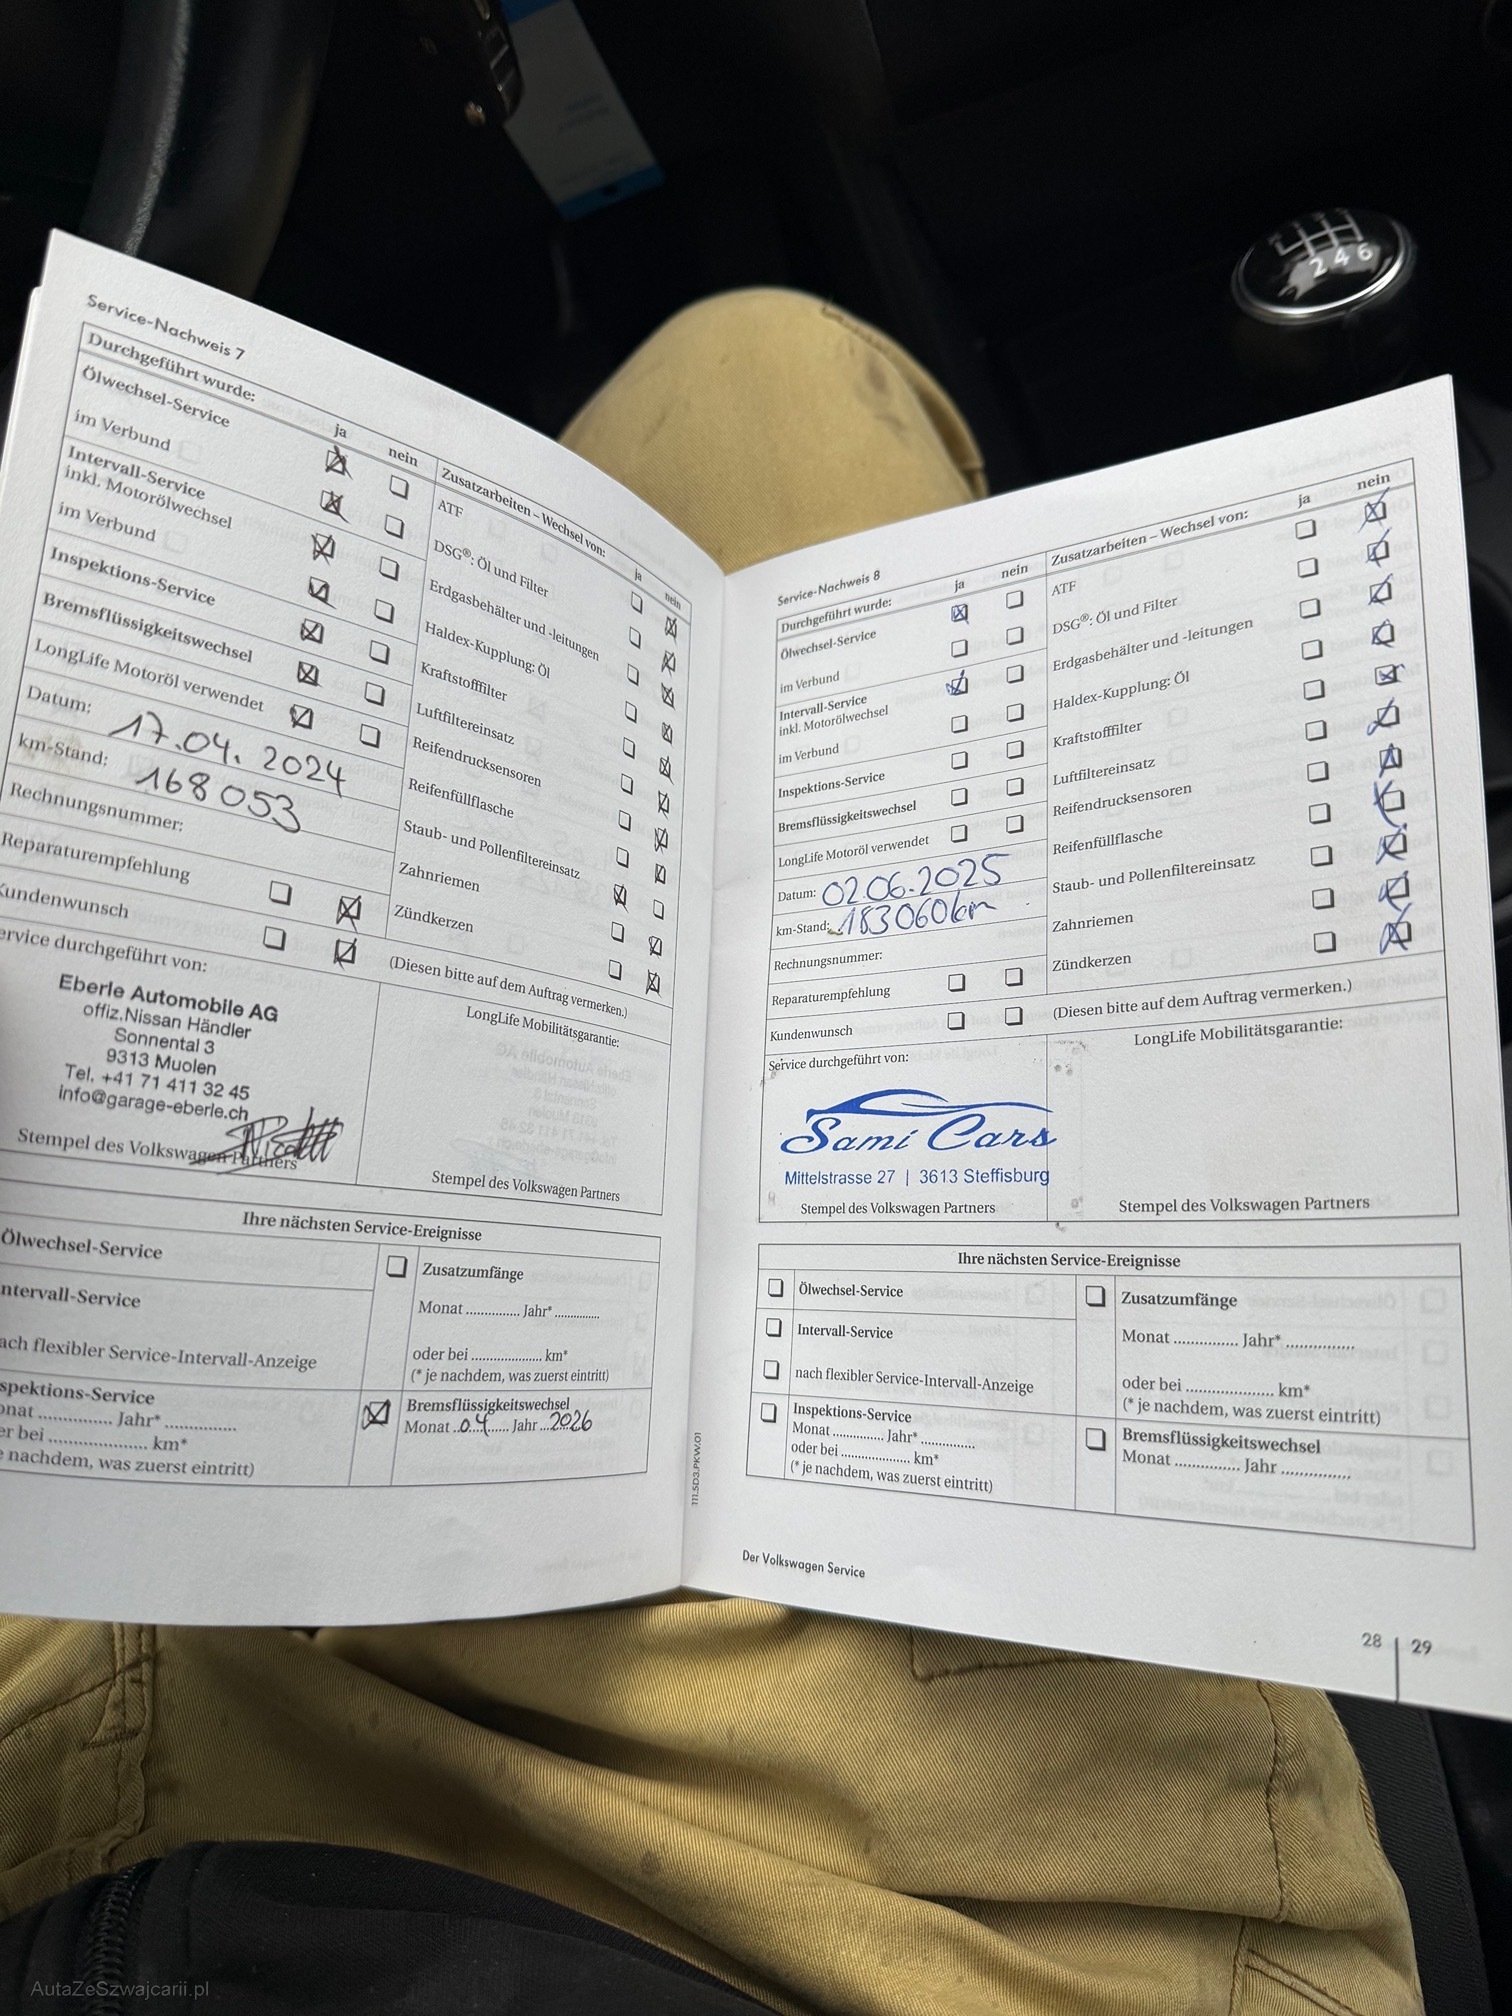 2 4 6
Service-Nachweis 7
Durchgeführt wurde:
ja
nein
Ölwechsel-Service
im Verbund
Intervall-Service
inkl. Motorölwechsel
im Verbund
Inspektions-Service
Bremsflüssigkeitswechsel
LongLife Motoröl verwendet
Datum: 17.04.2024
km-Stand: 168053
Rechnungsnummer:
Reparaturempfehlung
Kundenwunsch
ervice durchgeführt von:
Eberle Automobile AG
offiz.Nissan Händler
Sonnental 3
9313 Muolen
Tel. +41 71 411 32 45
info@garage-eberle.ch
Stempel des Volkswagen Partners
Zusatzarbeiten – Wechsel von:
ja
nein
ATF
DSG®: Öl und Filter
Erdgasbehälter und -leitungen
Haldex-Kupplung: Öl
Kraftstofffilter
Luftfiltereinsatz
Reifendrucksensoren
Reifenfüllflasche
Staub- und Pollenfiltereinsatz
Zahnriemen
Zündkerzen
(Diesen bitte auf dem Auftrag vermerken.)
LongLife Mobilitätsgarantie:
Stempel des Volkswagen Partners
Ihre nächsten Service-Ereignisse
Ölwechsel-Service
ntervall-Service
ach flexibler Service-Intervall-Anzeige
spektions-Service
onat .............. Jahr* ..............
er bei ................... km*
nachdem, was zuerst eintritt)
Zusatzumfänge
Monat .............. Jahr* ...........
oder bei ................... km*
(* je nachdem, was zuerst eintritt)
Bremsflüssigkeitswechsel
Monat ..04...... Jahr ...2026
111.5D3.PKW.01
Service-Nachweis 8
Durchgeführt wurde:
ja
nein
Ölwechsel-Service
im Verbund
Intervall-Service
inkl. Motorölwechsel
im Verbund
Inspektions-Service
Bremsflüssigkeitswechsel
LongLife Motoröl verwendet
Datum: 02.06.2025
km-Stand: 183060km
Rechnungsnummer:
Reparaturempfehlung
Kundenwunsch
Service durchgeführt von:
Sami Cars
Mittelstrasse 27 | 3613 Steffisburg
Stempel des Volkswagen Partners
Zusatzarbeiten – Wechsel von:
ja
nein
ATF
DSG®: Öl und Filter
Erdgasbehälter und -leitungen
Haldex-Kupplung: Öl
Kraftstofffilter
Luftfiltereinsatz
Reifendrucksensoren
Reifenfüllflasche
Staub- und Pollenfiltereinsatz
Zahnriemen
Zündkerzen
(Diesen bitte auf dem Auftrag vermerken.)
LongLife Mobilitätsgarantie:
Stempel des Volkswagen Partners
Ihre nächsten Service-Ereignisse
Ölwechsel-Service
Intervall-Service
nach flexibler Service-Intervall-Anzeige
Inspektions-Service
Monat ............. Jahr* ..............
oder bei .................... km*
(* je nachdem, was zuerst eintritt)
Zusatzumfänge
Monat .............. Jahr* ...............
oder bei ................... km*
(* je nachdem, was zuerst eintritt)
Bremsflüssigkeitswechsel
Monat .............. Jahr ...............
Der Volkswagen Service
28 | 29
AutaZeSzwajcarii.pl